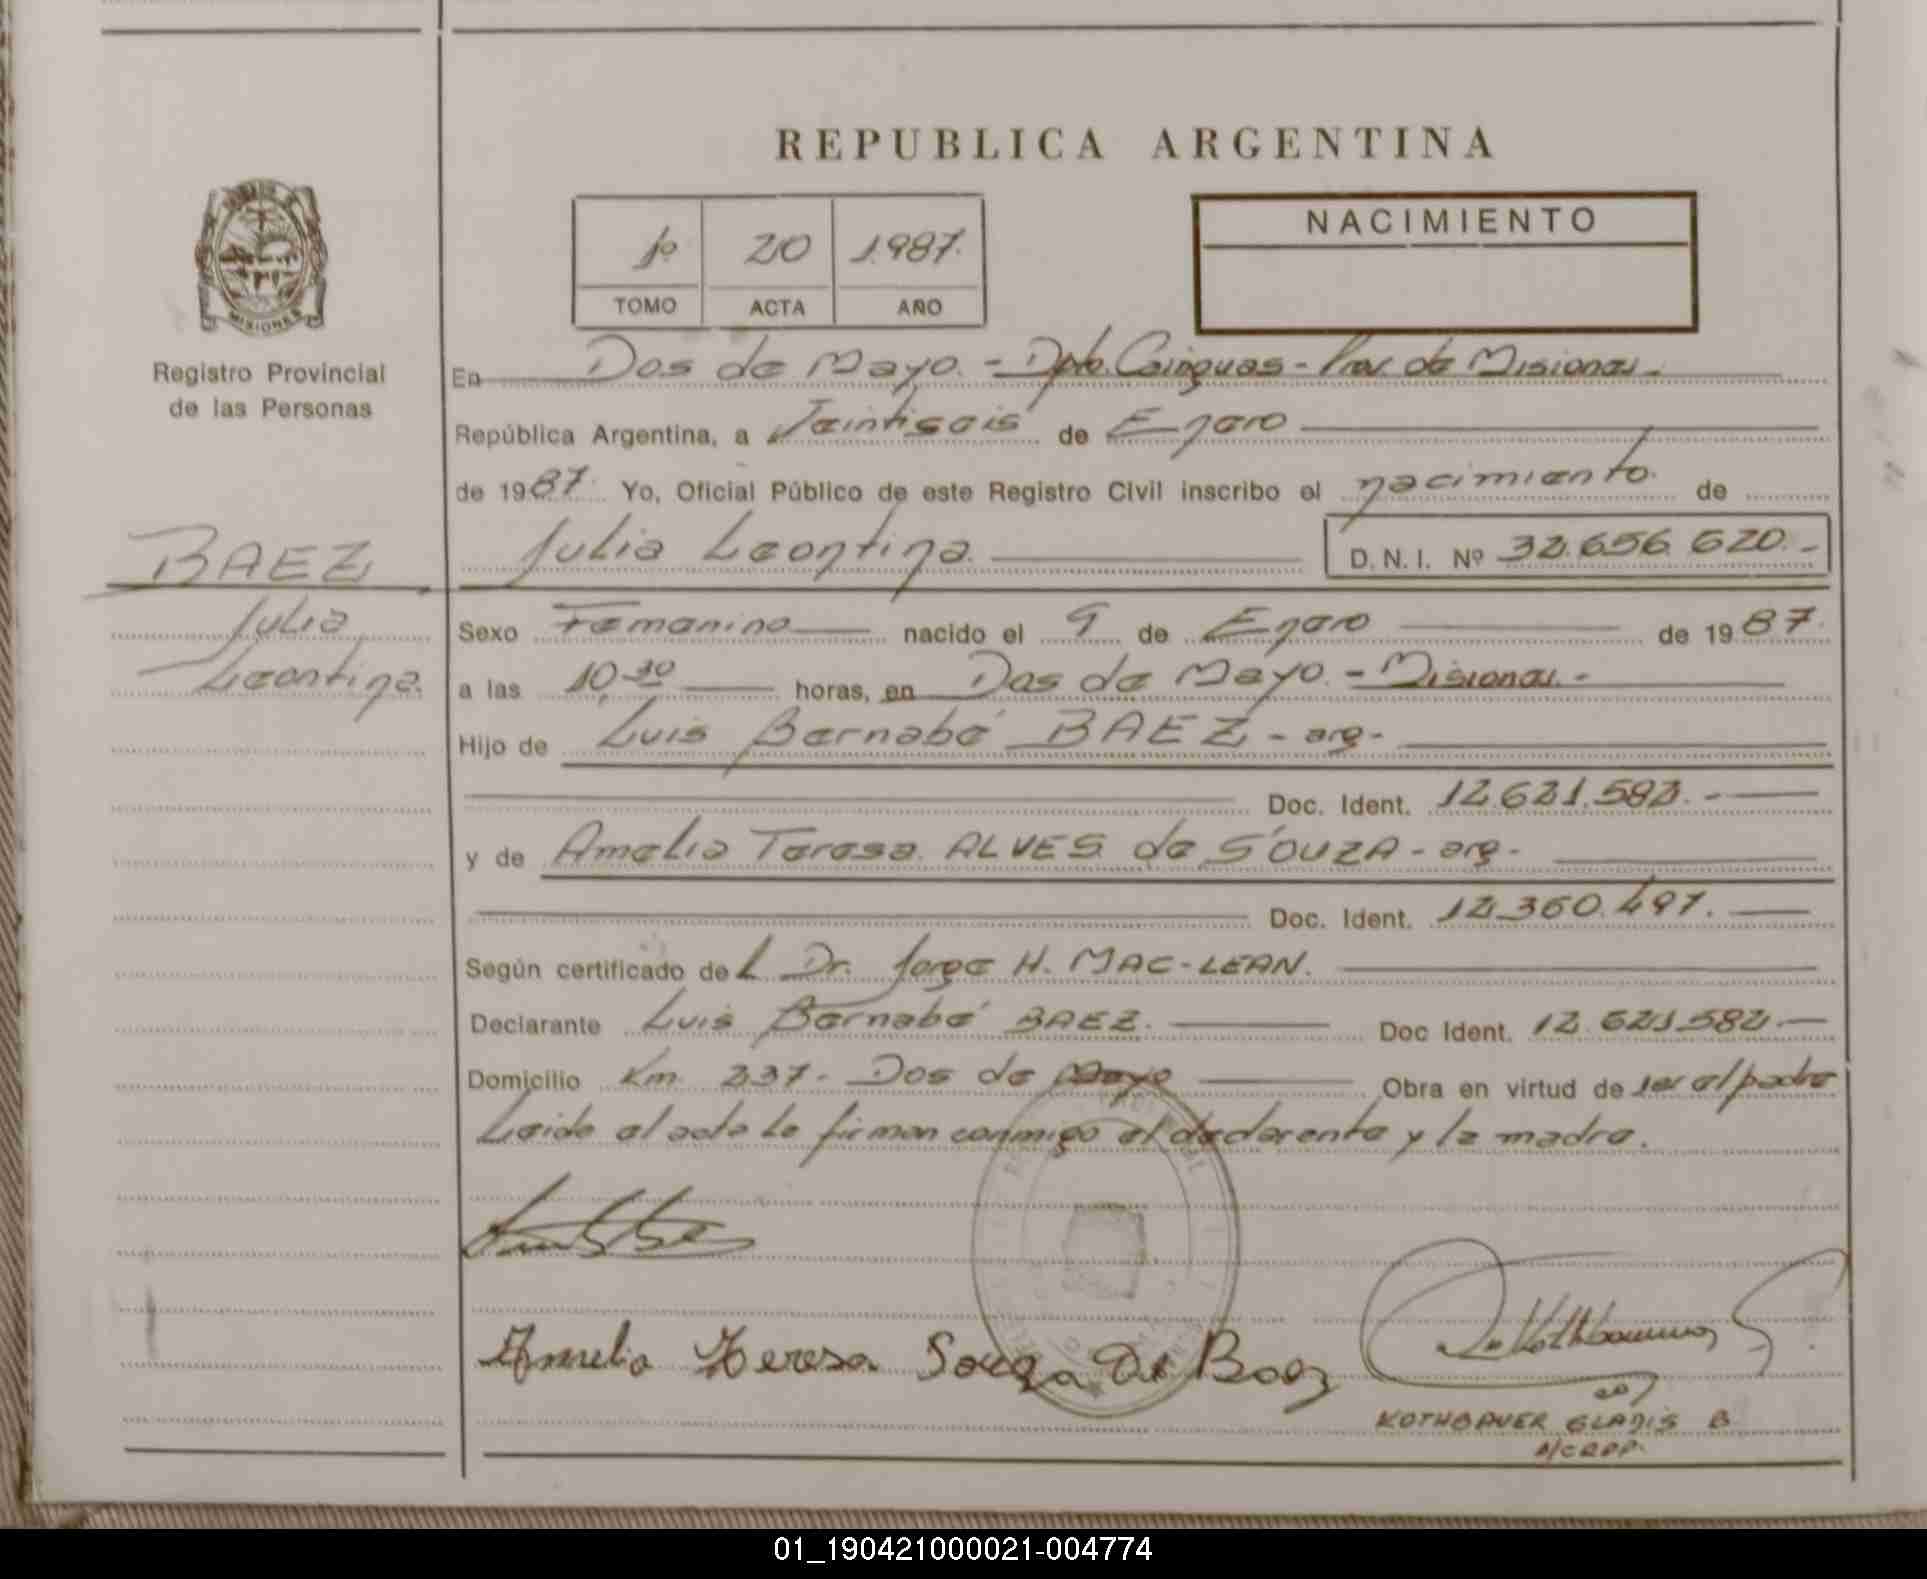 REPUBLICA ARGENTINA
1º 20 1.987.
TOMO ACTA AÑO
NACIMIENTO
MISIONES
Registro Provincial
de las Personas
En Dos de Mayo.- Dpto. Cainguas - Prov. de Misiones.-
República Argentina, a Veintiseis de Enero
de 1987. Yo, Oficial Público de este Registro Civil inscribo el nacimiento. de
Julia Leontina. D.N.I. Nº 32.656.620.-
BAEZ
Julia
Leontina.
Sexo Femenino nacido el 9 de Enero de 1987.
a las 10,30 horas, en Dos de Mayo.- Misiones.-
Hijo de Luis Bernabé BAEZ - arg-
Doc. Ident. 12.621.582.-
y de Amelia Teresa ALVES de SOUZA - arg-
Doc. Ident. 12.360.497.
Según certificado del Dr. Jorge H. MAC-LEAN.
Declarante Luis Bernabé BAEZ. Doc Ident. 12.621.582.-
Domicilio Km. 237.- Dos de Mayo Obra en virtud de ser el padre
Leida el acta la firman conmigo el declarante y la madre.
Amelia Teresa Souza De Baez
KOTHBAUER GLADIS B.
A/CRPP.
01_190421000021-004774